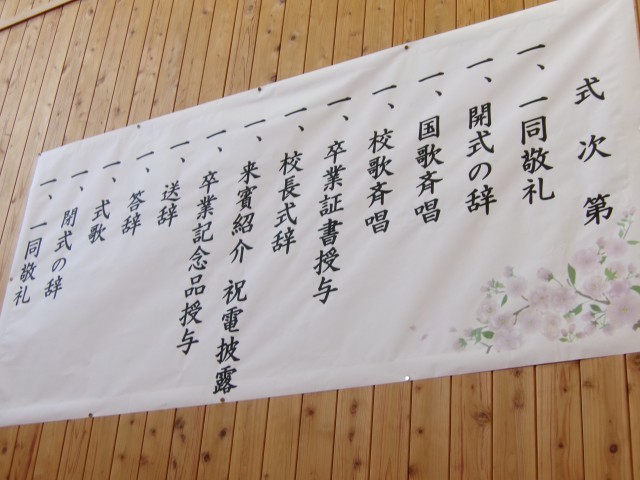 式次第
一、一同敬礼
一、開式の辞
一、国歌斉唱
一、校歌斉唱
一、卒業証書授与
一、校長式辞
一、来賓紹介 祝電披露
一、卒業記念品授与
一、送辞
一、答辞
一、式歌
一、閉式の辞
一、一同敬礼